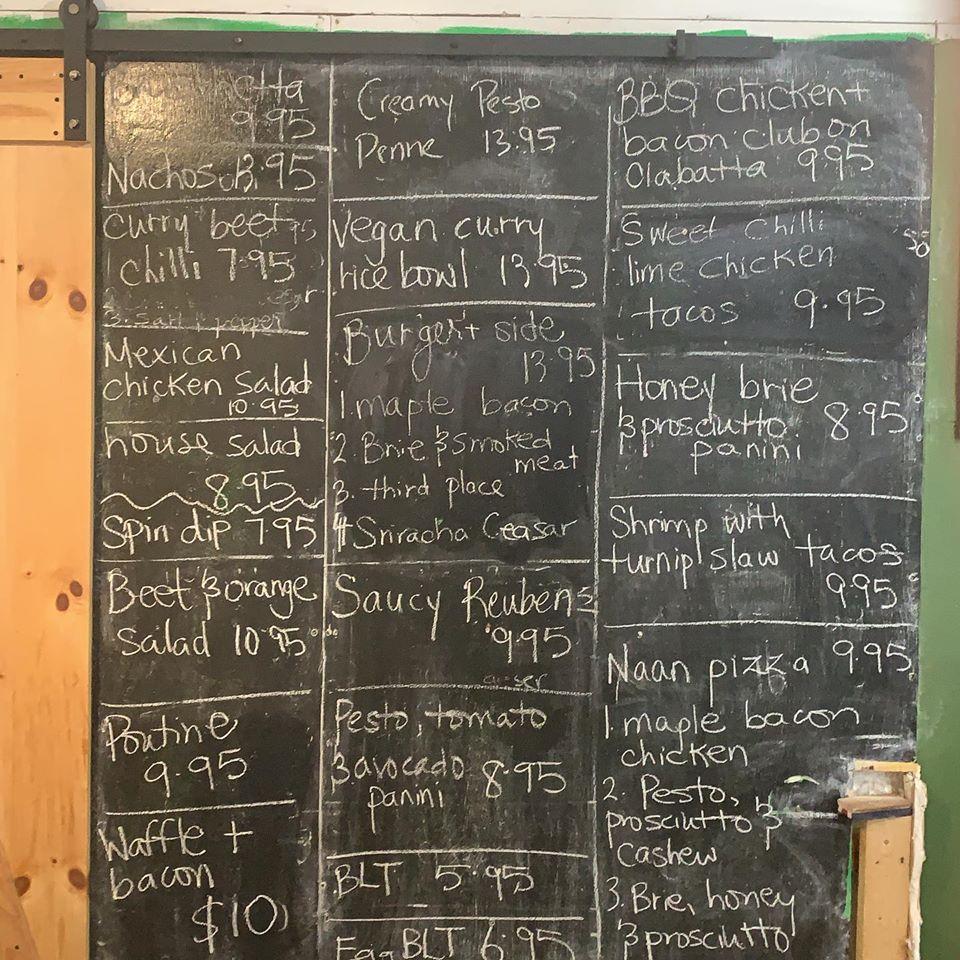 9.95
Nachos 13.95
Curry beef
chilli 7.95
3. Salt & pepper
Mexican
chicken salad
10.95
house salad
8.95
Spin dip 7.95
Beet & orange
salad 10.95
Poutine
9.95
Waffle +
bacon
$10
Creamy Pesto
Penne 13.95
Vegan curry
rice bowl 13.95
Burger + side
13.95
1. maple bacon
2. Brie & smoked
meat
3. third place
4 Sriracha Ceasar
Saucy Reubens
9.95
Pesto, tomato
& avocado 8.95
panini
BLT 5.95
Egg BLT 6.95
BBQ chicken +
bacon club on
Ciabatta 9.95
Sweet chilli
lime chicken
tacos 9.95
Honey brie
& prosciutto 8.95
panini
Shrimp with
turnip slaw tacos
9.95
Naan pizza 9.95
1. maple bacon
chicken
2. Pesto,
prosciutto &
Cashew
3. Brie, honey
& prosciutto